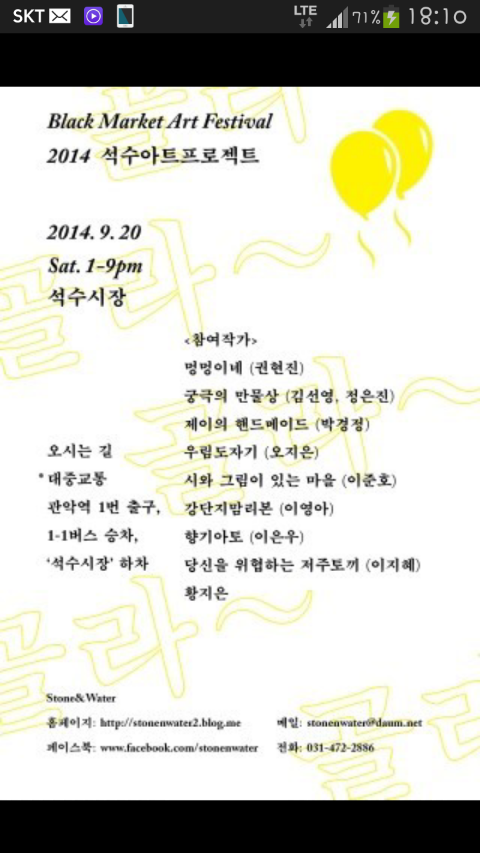 SKT
LTE
71%
18:10
Black Market Art Festival
2014 석수아트프로젝트
2014. 9. 20
Sat. 1-9pm
석수시장
<참여작가>
멍멍이네 (권현진)
궁극의 만물상 (김선영, 정은진)
제이의 핸드메이드 (박경정)
우림도자기 (오지은)
시와 그림이 있는 마을 (이준호)
강단지맘리본 (이영아)
향기아토 (이은우)
당신을 위협하는 저주토끼 (이지혜)
황지은
오시는 길
* 대중교통
관악역 1번 출구,
1-1버스 승차,
‘석수시장’ 하차
Stone&Water
홈페이지: http://stonenwater2.blog.me
메일: stonenwater@daum.net
페이스북: www.facebook.com/stonenwater
전화: 031-472-2886
골라~
골라~
골라~
골라~
골라